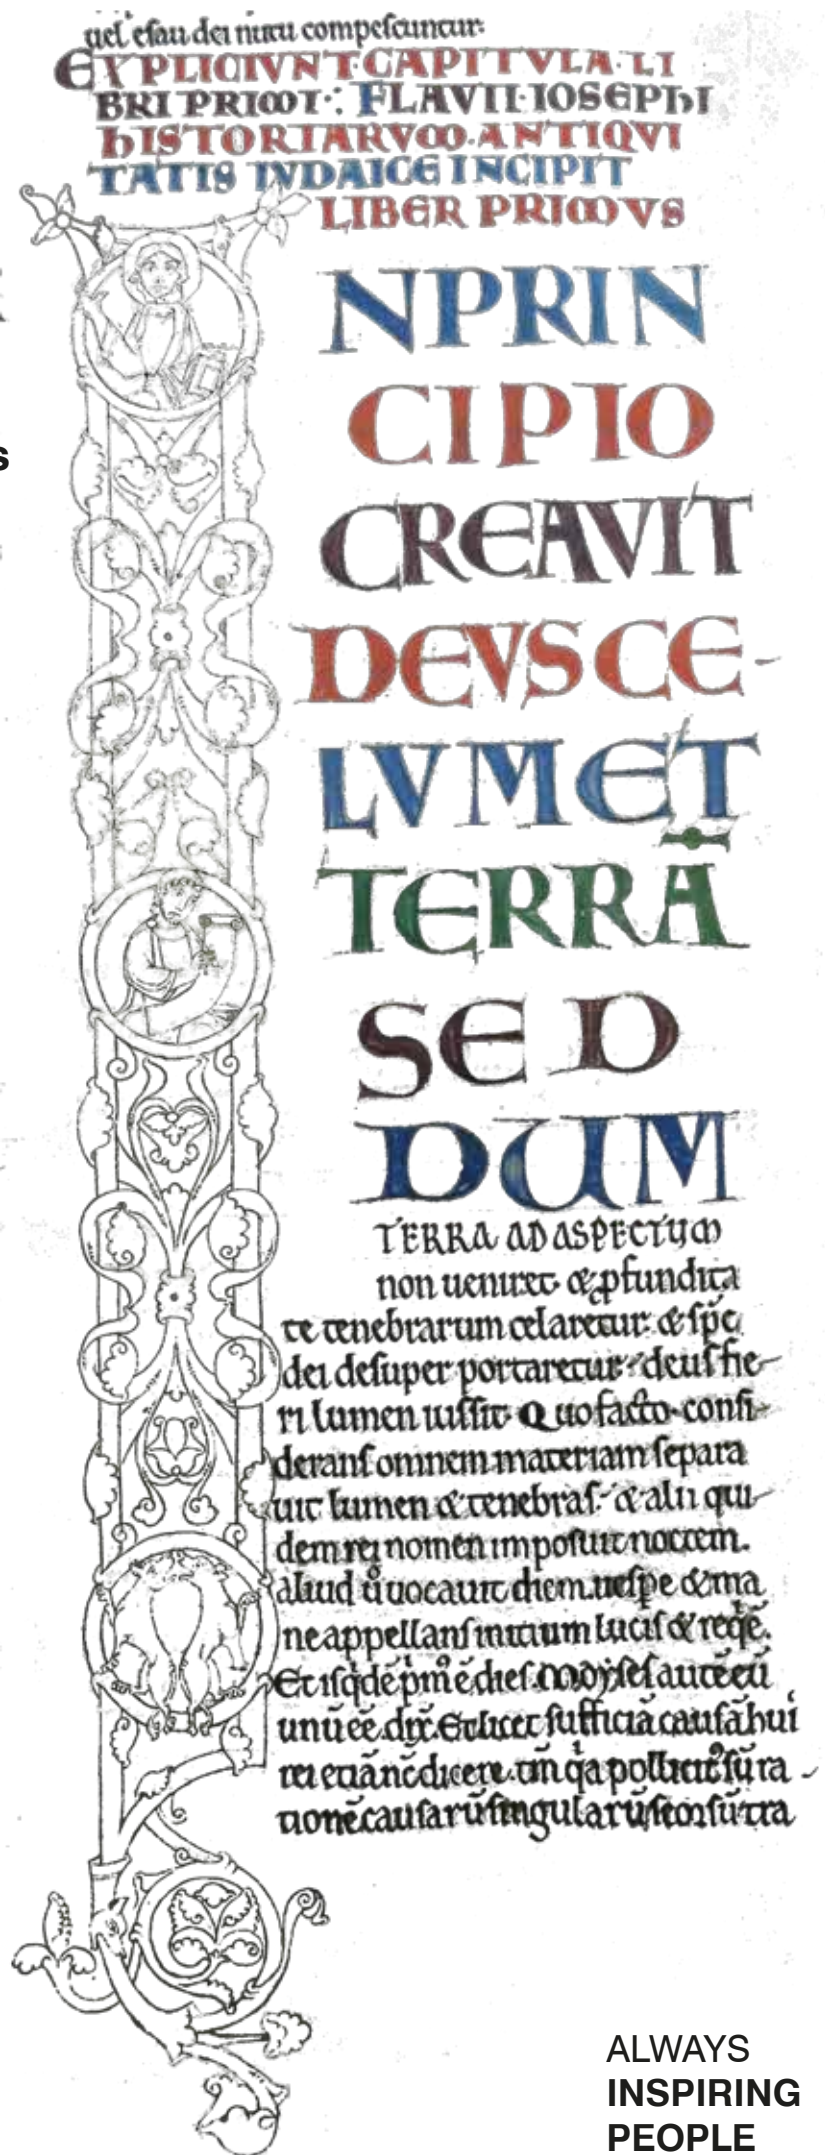 uel esau dei nutu compescuntur.
EXPLICIVNT·CAPITVLA·LI
BRI PRIMI·: FLAVII·IOSEPHI
HISTORIARVM·ANTIQVI
TATIS IVDAICE INCIPIT
LIBER PRIMVS
NPRIN
CIPIO
CREAVIT
DEVS CE-
LVM ET
TERRĀ
SED
DUM
TERRA AD ASPECTUM
non ueniret· & ꝓfundita
te tenebrarum celaretur· & sp̄c
dei desuper portaretur· deus fie-
ri lumen iussit· Quo facto· consi-
derans omnem materiam separa
uit lumen & tenebras· & alii qui-
dem rei nomen imposuit noctem.
aliud ů uocauit diem. uespe & ma
ne appellans initium lucis & reqē.
Et isqͥdē pmͥ ē dies. Moyses autē eū
unū eē. dix̄. Et licet sufficiā causā huiͥ
rei etiā nc̄ dicere. tm̄ qͥa pollicitꝰ sū ra-
tionē causarū singularū seorsū tra
ALWAYS
INSPIRING
PEOPLE